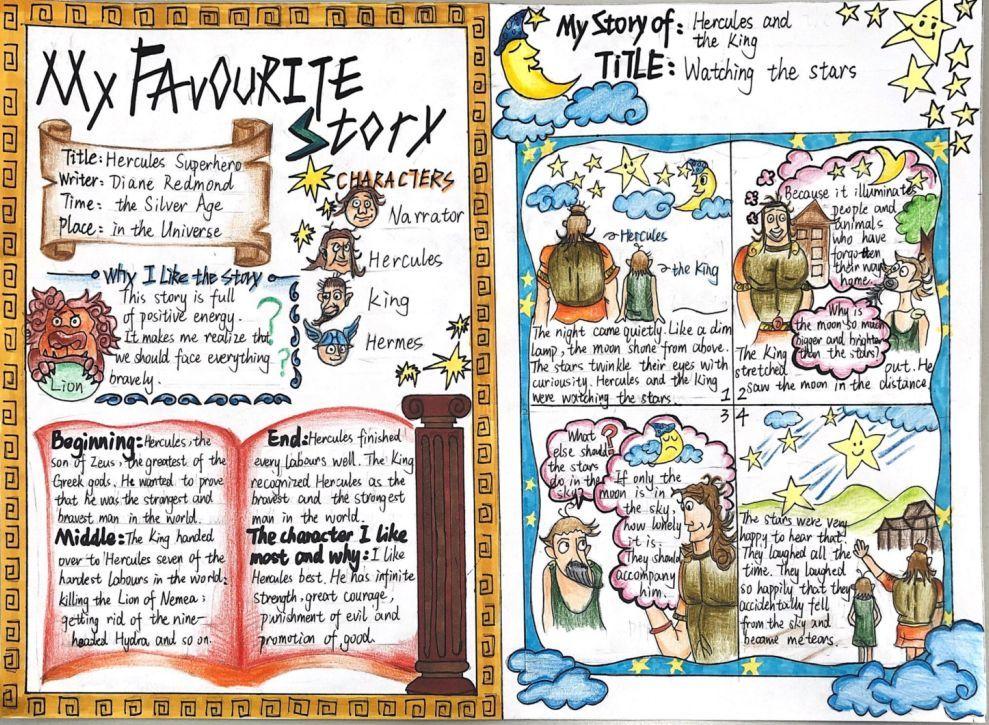 My FAVOURITE
Story
Title: Hercules Superhero
Writer: Diane Redmond
Time: the Silver Age
Place: in the Universe
CHARACTERS
Narrator
Hercules
King
Hermes
Why I Like the Story
This story is full
of positive energy.
It makes me realize that
we should face everything
bravely.
?
?
Lion
Beginning: Hercules, the
son of Zeus, the greatest of the
Greek gods. He wanted to prove
that he was the strongest and
bravest man in the world.
Middle: The King handed
over to Hercules seven of the
hardest labours in the world:
killing the Lion of Nemea;
getting rid of the nine-
headed Hydra, and so on.
End: Hercules finished
every labours well. The King
recognized Hercules as the
bravest and the strongest
man in the world.
The character I like
most and why: I like
Hercules best. He has infinite
strength, great courage,
punishment of evil and
promotion of good.
My Story of: Hercules and
the King
TITLE: Watching the stars
Hercules
the King
The night came quietly. Like a dim
lamp, the moon shone from above.
The stars twinkle their eyes with
curiosity. Hercules and the King
were watching the stars.
1
Because it illuminates
people and
animals
who have
forgotten
their way
home.
Why is
the moon so much
bigger and brighter
than the stars?
The King
stretched out. He
saw the moon in the distance,
2
3
What
else should
the stars
do in the
sky?
If only the
moon is in
the sky,
how lonely
it is.
They should
accompany
him.
4
The stars were very
happy to hear that.
They laughed all the
time. They laughed
so happily that they
accidentally fell
from the sky and
became meteors.